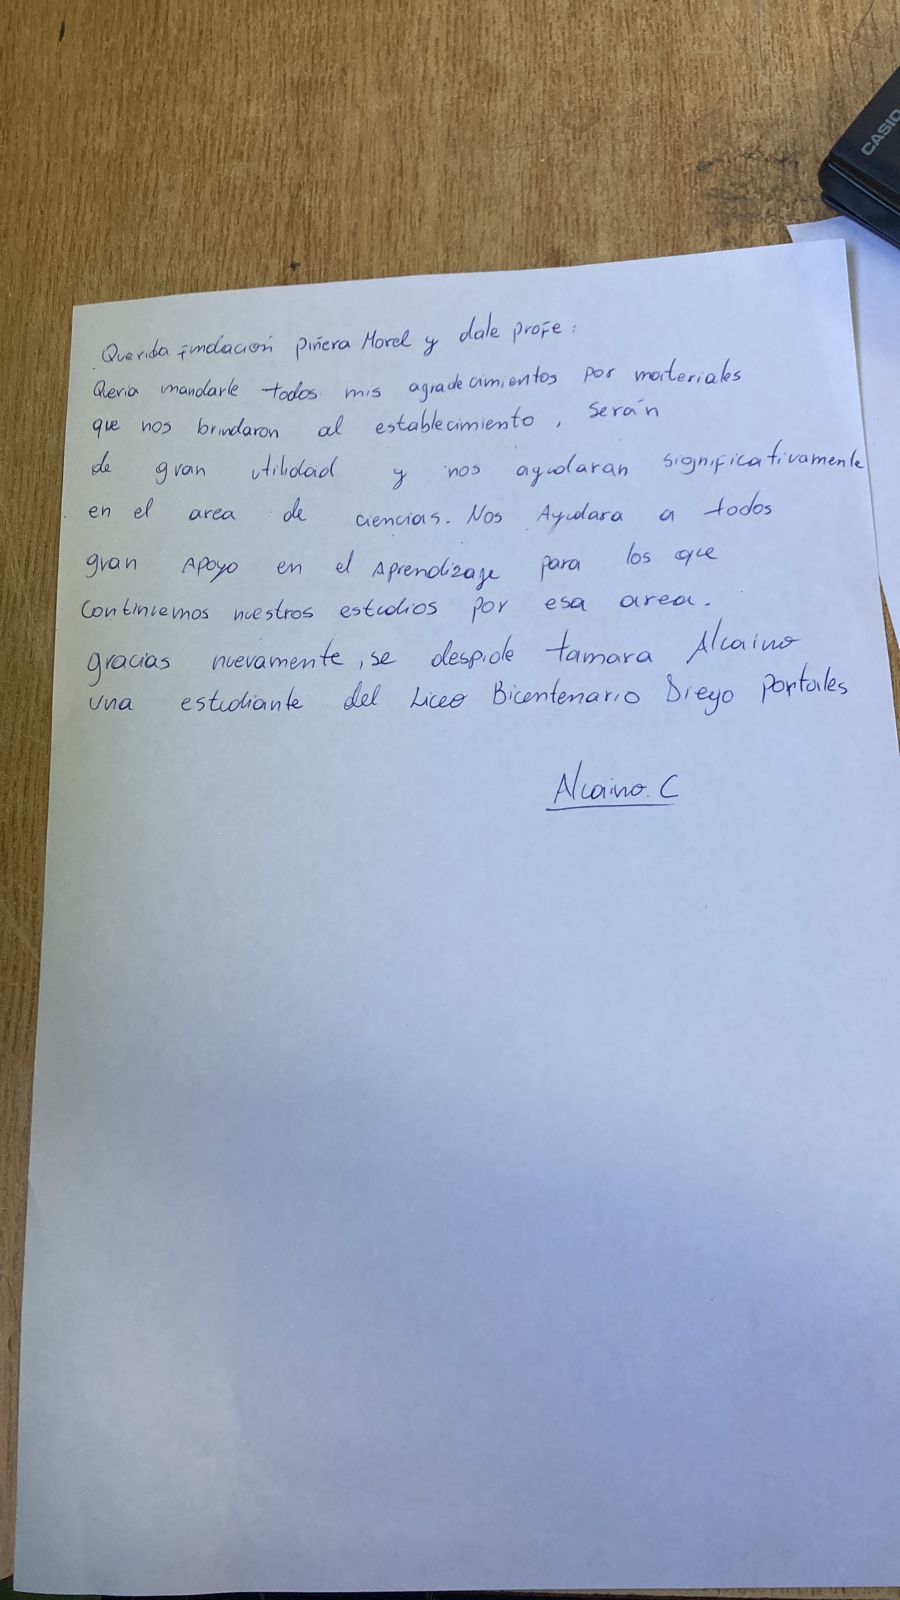 CASIO
Querida fundación piñera Morel y dale profe:
Quería mandarle todos mis agradecimientos por materiales
que nos brindaron al establecimiento, serán
de gran utilidad y nos ayudaran significativamente
en el area de ciencias. Nos Ayudara a todos
gran Apoyo en el Aprendizaje para los que
Continuemos nuestros estudios por esa area.
gracias nuevamente, se despide tamara Alcaino
una estudiante del Liceo Bicentenario Diego portales
Alcaino. C